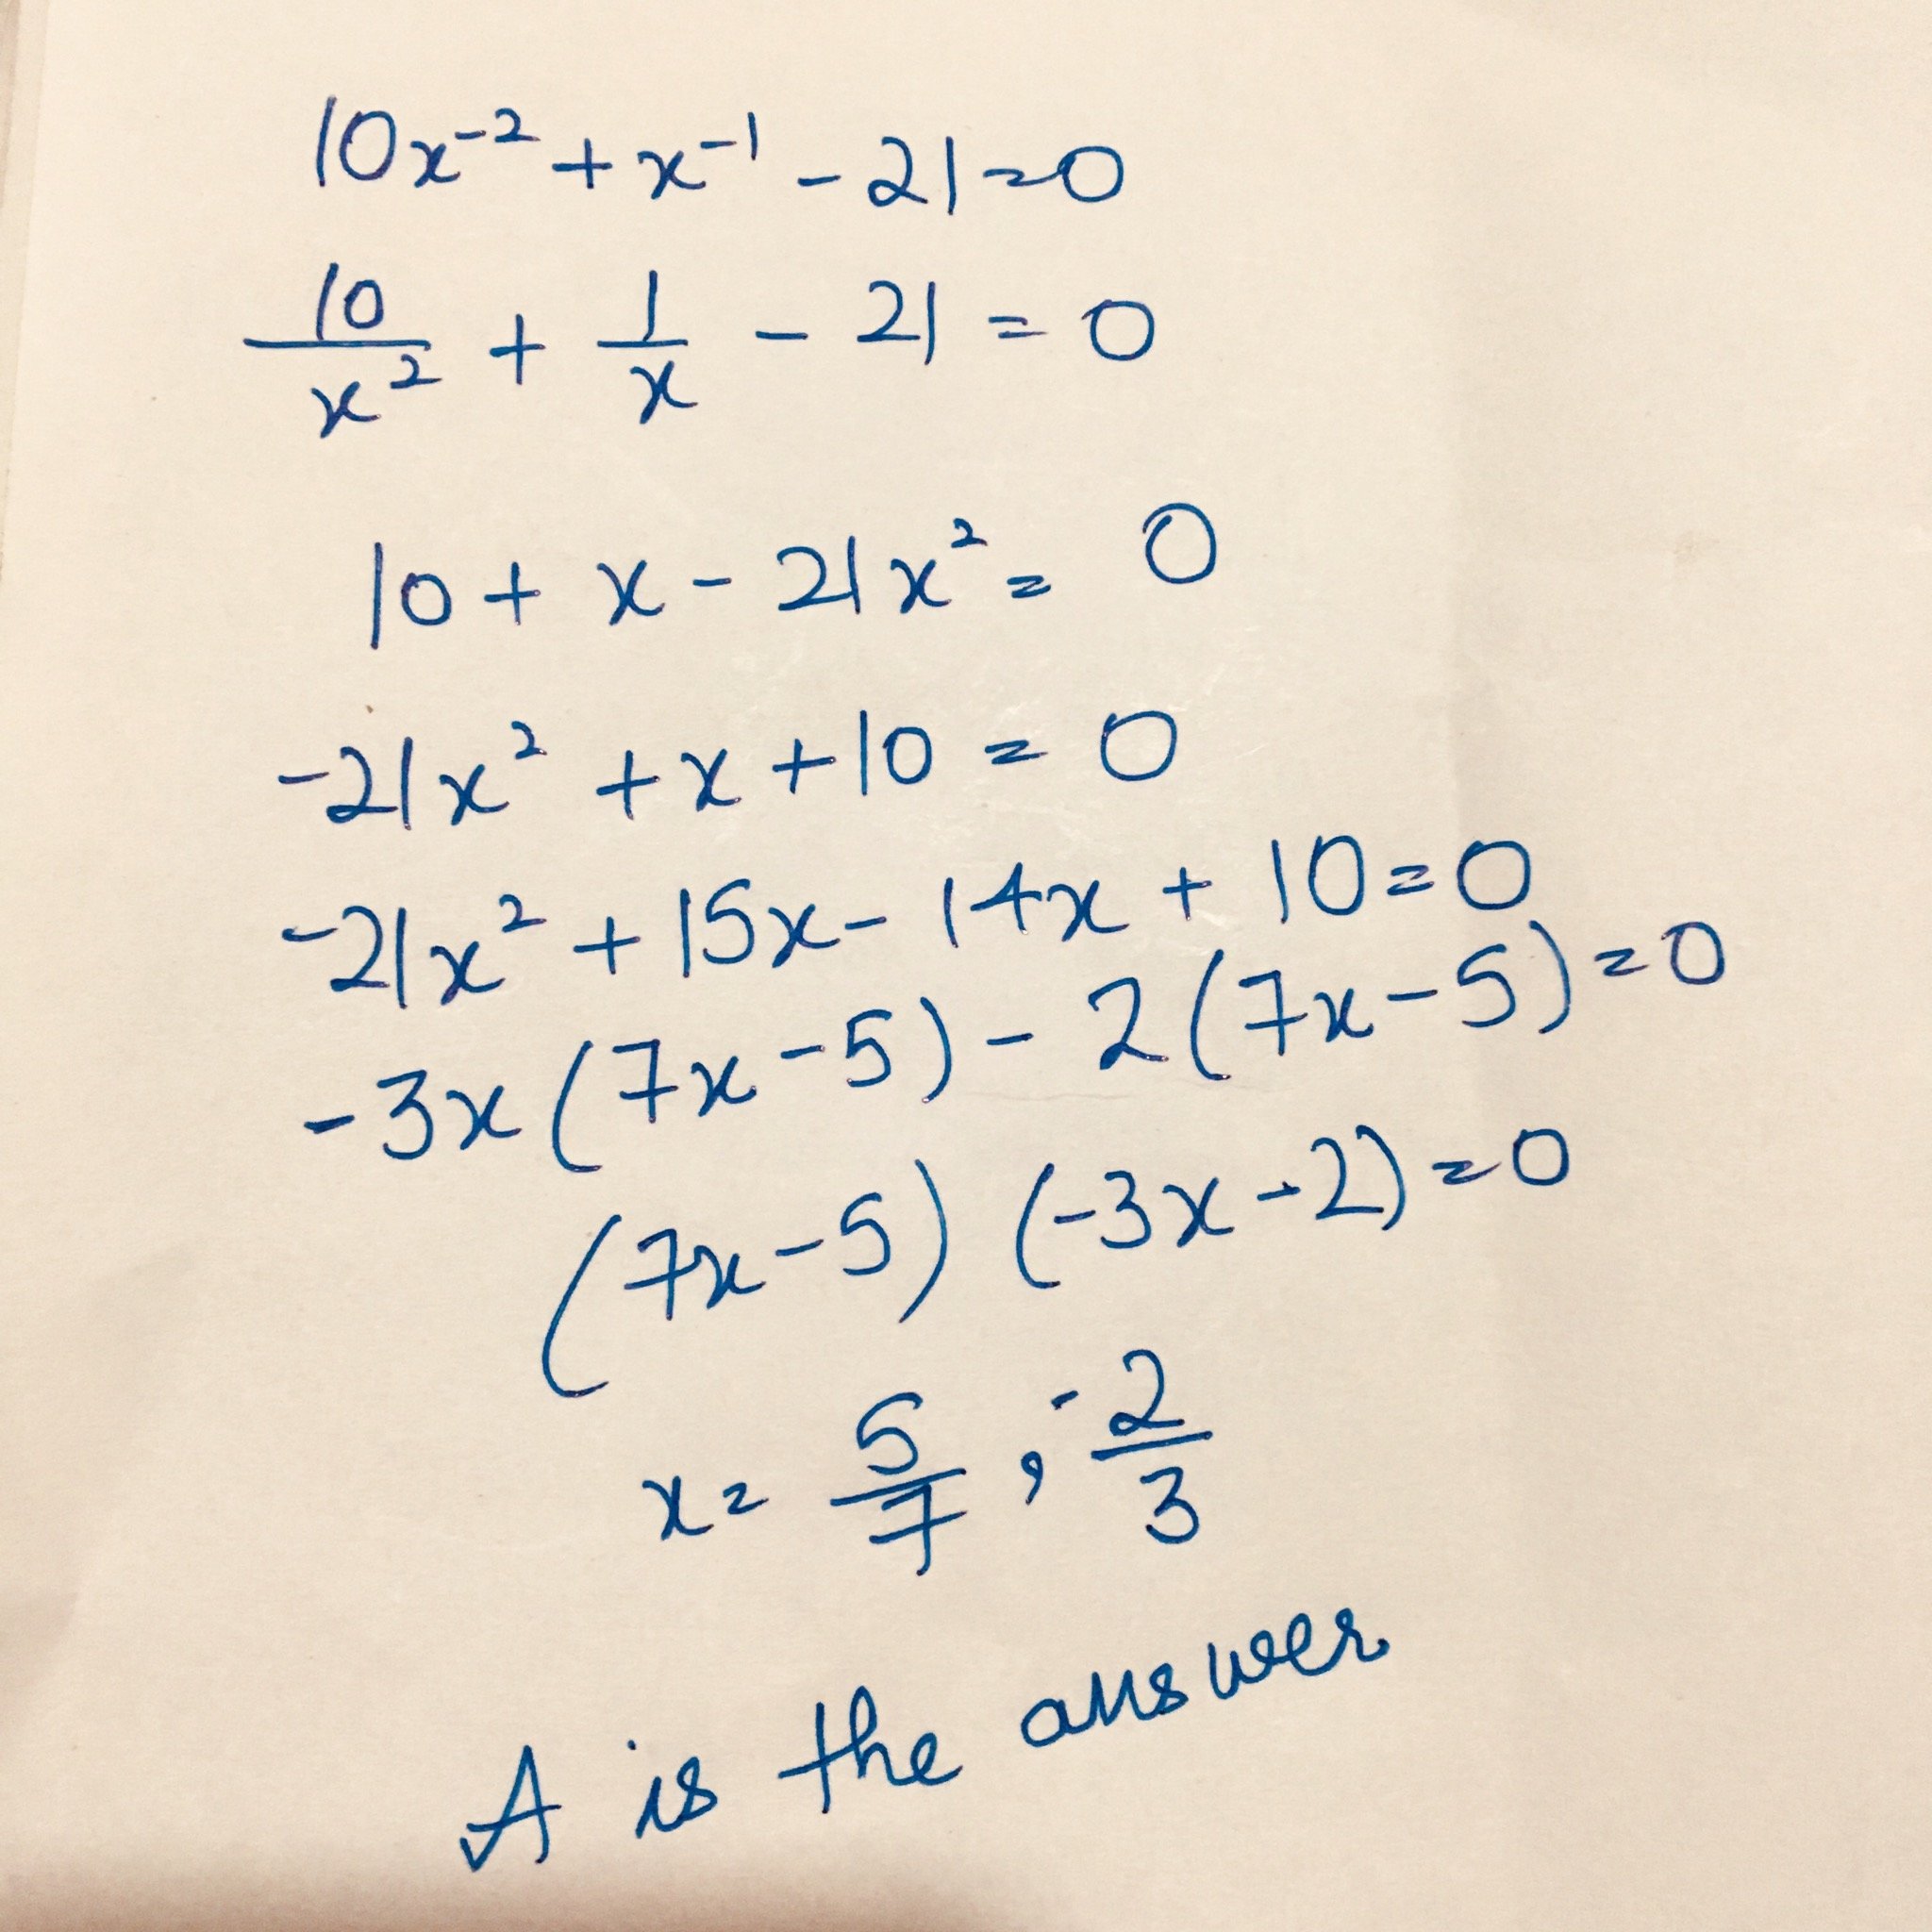 10x⁻² + x⁻¹ - 21 = 0
10/x² + 1/x - 21 = 0
10 + x - 21x² = 0
-21x² + x + 10 = 0
-21x² + 15x - 14x + 10 = 0
-3x(7x-5) - 2(7x-5) = 0
(7x-5) (-3x-2) = 0
x = 5/7 , -2/3
A is the answer